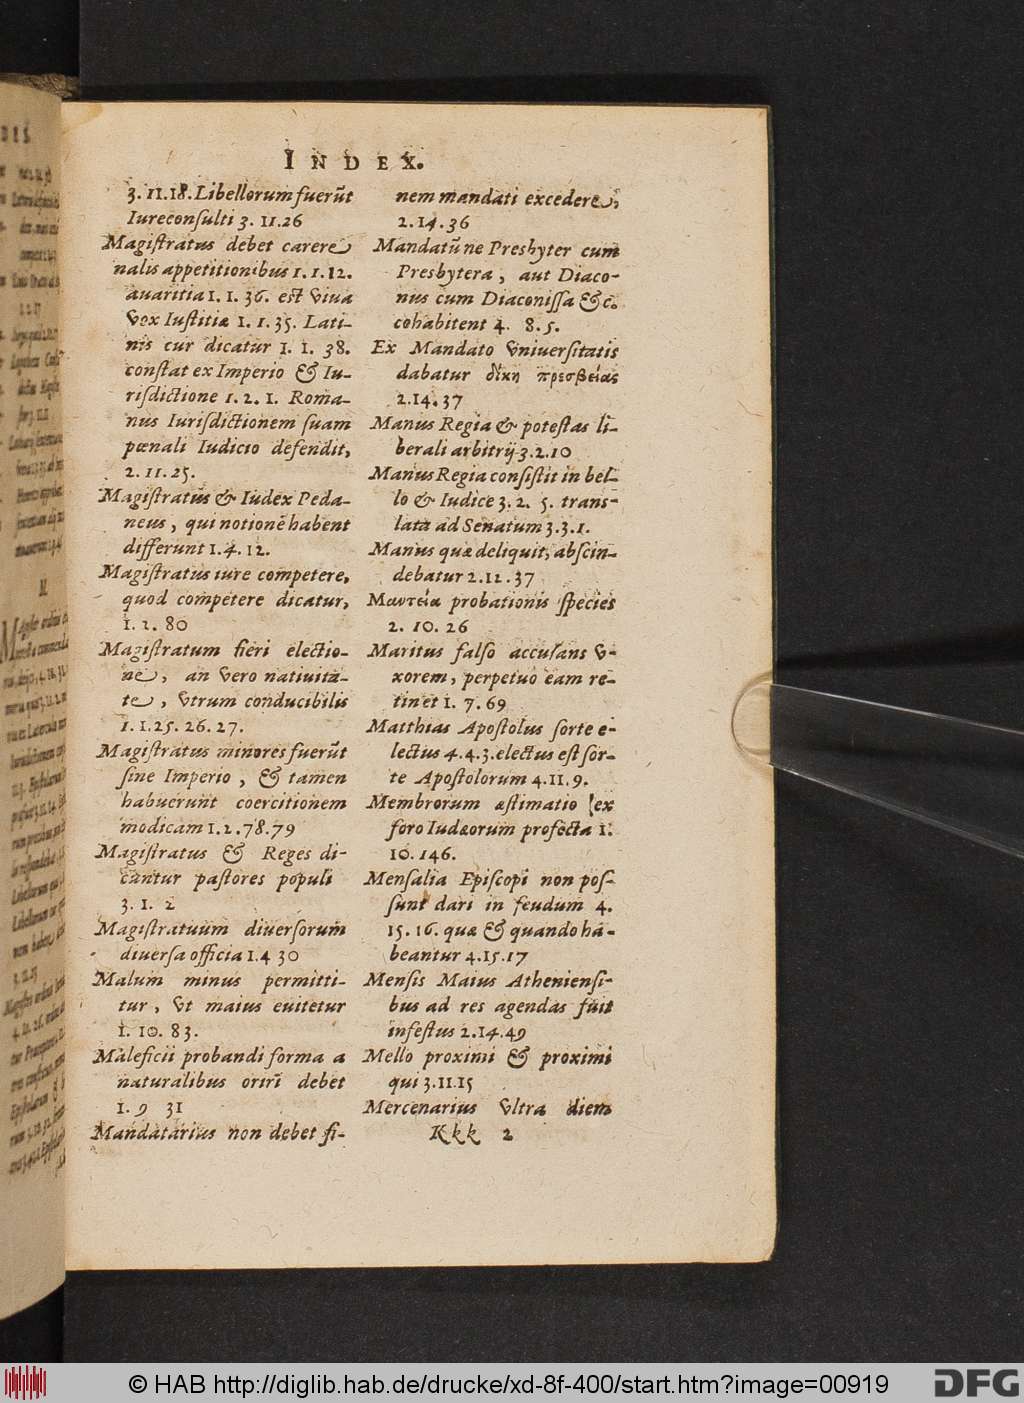 INDEX.
3. 11.18. Libellorum fuerũt
Iureconſulti 3. 11.26
Magiſtratus debet carere
nalis appetitionibus 1.1.12.
auaritia 1. 1. 36. eſt viua
vox Iuſtitiæ 1. 1.35. Lati-
nis cur dicatur 1. 1. 38.
conſtat ex Imperio & Iu-
riſdictione 1. 2. 1. Roma-
nus Iuriſdictionem ſuam
pœnali Iudicio defendit,
2. 11. 25.
Magiſtratus & Iudex Peda-
neus, qui notionẽ habent
differunt 1. 4. 12.
Magiſtratus iure competere,
quod competere dicatur,
1. 2. 80
Magiſtratum fieri electio-
ne, an vero natiuita-
te, vtrum conducibilis
1.1.25. 26. 27.
Magiſtratus minores fuerũt
ſine Imperio, & tamen
habuerunt coercitionem
modicam 1.2.78.79
Magiſtratus & Reges di-
cuntur paſtores populi
3. 1. 2
Magiſtratuum diuerſorum
diuerſa officia 1.4 30
Malum minus permitti-
tur, vt maius euitetur
1. 10. 83.
Maleficii probandi forma a
naturalibus oriri debet
1. 9 31
Mandatarius non debet fi-
nem mandati excedere,
2. 14. 36
Mandatũ ne Presbyter cum
Presbytera, aut Diaco-
nus cum Diaconiſſa &c.
cohabitent 4. 8. 5.
Ex Mandato vniuerſitatis
dabatur δίκη πρεσβείας
2.14. 37
Manus Regia & poteſtas li-
berali arbitrij 3.2.10
Manus Regia conſiſtit in bel-
lo & Iudice 3. 2. 5. trans-
lata ad Senatum 3.3.1.
Manus quæ deliquit, abſcin-
debatur 2.12.37
Μαντεία probationis ſpecies
2. 10. 26
Maritus falſo accuſans v-
xorem, perpetuò eam re-
tinet 1. 7. 69
Matthias Apoſtolus ſorte e-
lectus 4.4.3. electus eſt ſor-
te Apoſtolorum 4.11.9.
Membrorum æſtimatio ex
foro Iudæorum profecta 1.
10. 146.
Menſalia Epiſcopi non poſ-
ſunt dari in feudum 4.
15. 16. quæ & quando ha-
beantur 4.15.17
Menſis Maius Athenienſi-
bus ad res agendas fuit
infeſtus 2.14.49
Mello proximi & proximi
qui 3.11.15
Mercenarius vltra diem
Kkk 2
© HAB http://diglib.hab.de/drucke/xd-8f-400/start.htm?image=00919
DFG